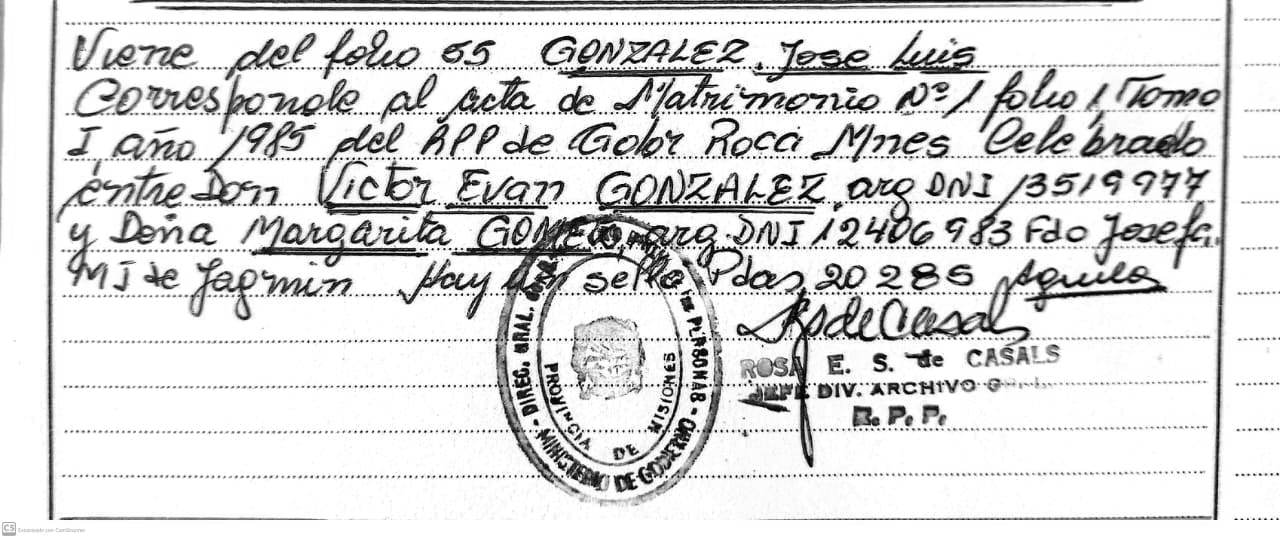 Viene del folio 55 GONZALEZ, Jose Luis
Corresponde al acta de Matrimonio Nº 1 folio 1, Tomo
I, año 1985 del RPP de Golor Roca Mnes Celebrado
entre Don Victor Evan GONZALEZ, arg DNI 13519977
y Doña Margarita GOMEZ, arg. DNI 12406983 Fdo Josefa
MJ de Jagmin Hay un sello Pdas 20285 Aguila
ROSA E. S. de CASALS
JEFE DIV. ARCHIVO
R. P. P.
DIREC. GRAL. PERSONAS - MINISTERIO DE GOBIERNO -
PROVINCIA DE MISIONES
CS Escaneado con CamScanner